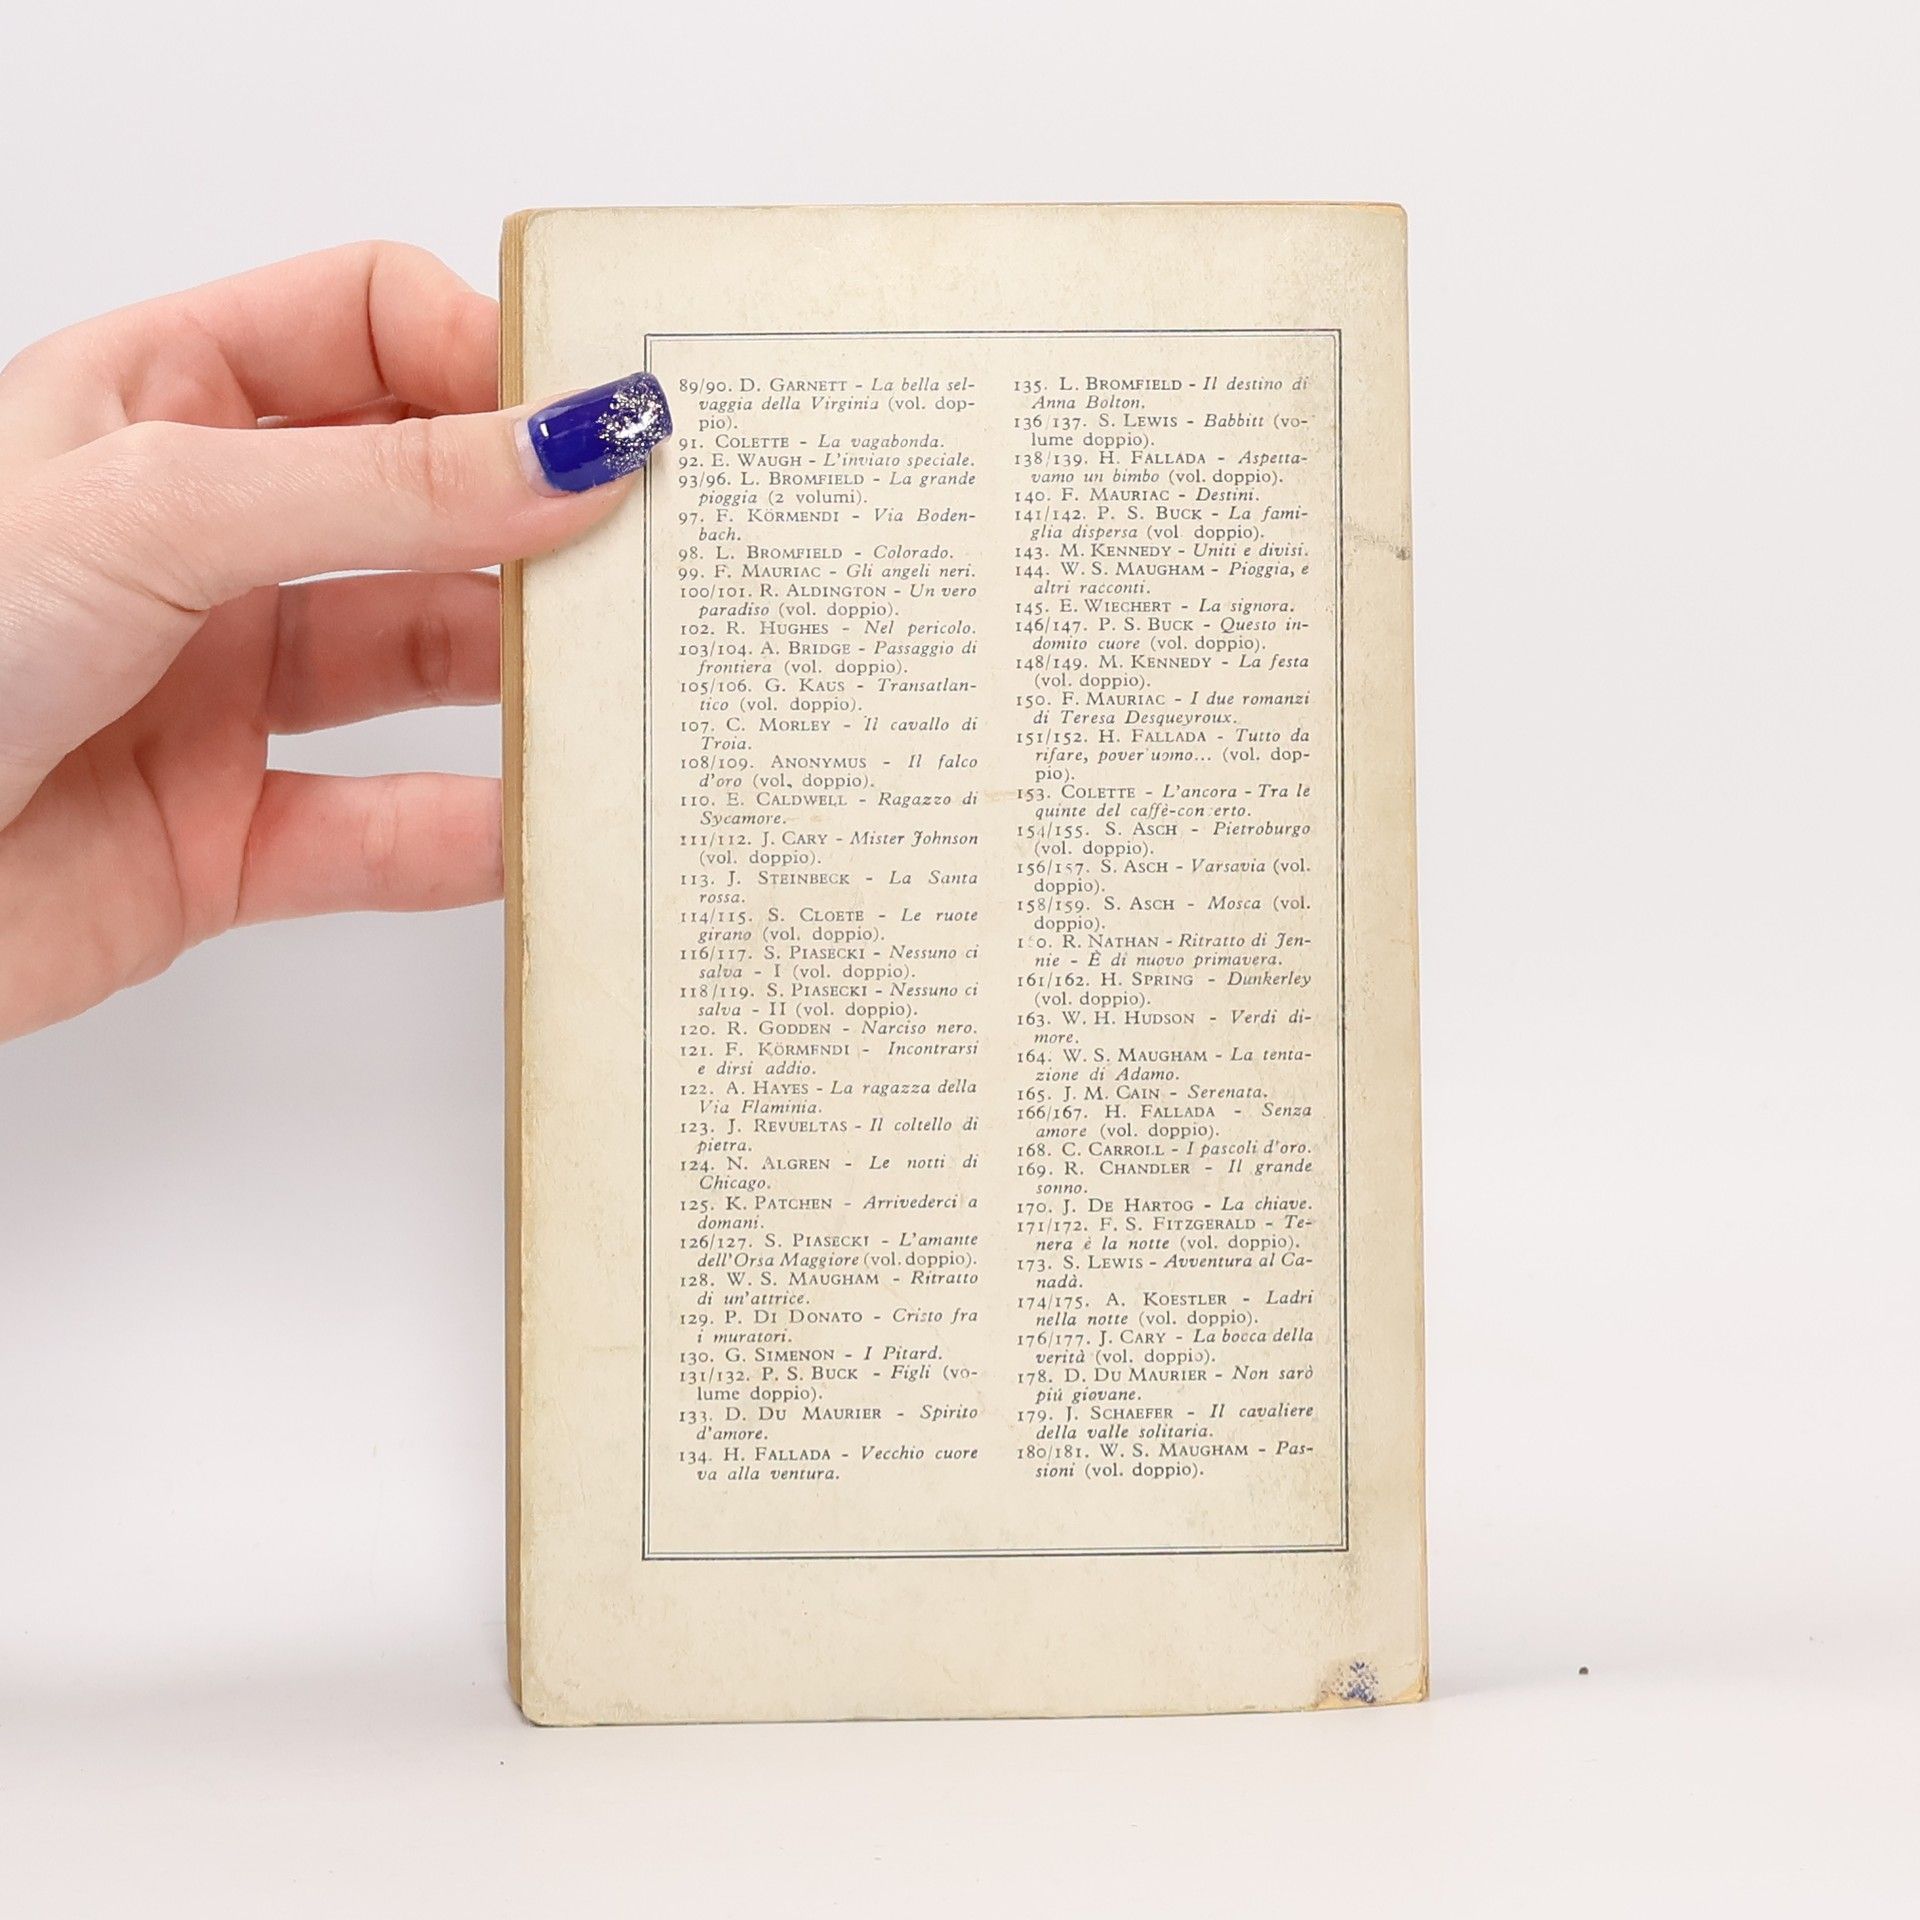 89/90. D. GARNETT - La bella sel-
vaggia della Virginia (vol. dop-
pio).
91. COLETTE - La vagabonda.
92. E. WAUGH - L'inviato speciale.
93/96. L. BROMFIELD - La grande
pioggia (2 volumi).
97. F. KÖRMENDI - Via Boden-
bach.
98. L. BROMFIELD - Colorado.
99. F. MAURIAC - Gli angeli neri.
100/101. R. ALDINGTON - Un vero
paradiso (vol. doppio).
102. R. HUGHES - Nel pericolo.
103/104. A. BRIDGE - Passaggio di
frontiera (vol. doppio).
105/106. G. KAUS - Transatlan-
tico (vol. doppio).
107. C. MORLEY - Il cavallo di
Troia.
108/109. ANONYMUS - Il falco
d'oro (vol. doppio).
110. E. CALDWELL - Ragazzo di
Sycamore.
111/112. J. CARY - Mister Johnson
(vol. doppio).
113. J. STEINBECK - La Santa
rossa.
114/115. S. CLOETE - Le ruote
girano (vol. doppio).
116/117. S. PIASECKI - Nessuno ci
salva - I (vol. doppio).
118/119. S. PIASECKI - Nessuno ci
salva - II (vol. doppio).
120. R. GODDEN - Narciso nero.
121. F. KÖRMENDI - Incontrarsi
e dirsi addio.
122. A. HAYES - La ragazza della
Via Flaminia.
123. J. REVUELTAS - Il coltello di
pietra.
124. N. ALGREN - Le notti di
Chicago.
125. K. PATCHEN - Arrivederci a
domani.
126/127. S. PIASECKI - L'amante
dell'Orsa Maggiore (vol. doppio).
128. W. S. MAUGHAM - Ritratto
di un'attrice.
129. P. DI DONATO - Cristo fra
i muratori.
130. G. SIMENON - I Pitard.
131/132. P. S. BUCK - Figli (vo-
lume doppio).
133. D. DU MAURIER - Spirito
d'amore.
134. H. FALLADA - Vecchio cuore
va alla ventura.
135. L. BROMFIELD - Il destino di
Anna Bolton.
136/137. S. LEWIS - Babbitt (vo-
lume doppio).
138/139. H. FALLADA - Aspetta-
vamo un bimbo (vol. doppio).
140. F. MAURIAC - Destini.
141/142. P. S. BUCK - La fami-
glia dispersa (vol doppio).
143. M. KENNEDY - Uniti e divisi.
144. W. S. MAUGHAM - Pioggia, e
altri racconti.
145. E. WIECHERT - La signora.
146/147. P. S. BUCK - Questo in-
domito cuore (vol. doppio).
148/149. M. KENNEDY - La festa
(vol. doppio).
150. F. MAURIAC - I due romanzi
di Teresa Desqueyroux.
151/152. H. FALLADA - Tutto da
rifare, pover'uomo... (vol. dop-
pio).
153. COLETTE - L'ancora - Tra le
quinte del caffè-concerto.
154/155. S. ASCH - Pietroburgo
(vol. doppio).
156/157. S. ASCH - Varsavia (vol.
doppio).
158/159. S. ASCH - Mosca (vol.
doppio).
160. R. NATHAN - Ritratto di Jen-
nie - È di nuovo primavera.
161/162. H. SPRING - Dunkerley
(vol. doppio).
163. W. H. HUDSON - Verdi di-
more.
164. W. S. MAUGHAM - La tenta-
zione di Adamo.
165. J. M. CAIN - Serenata.
166/167. H. FALLADA - Senza
amore (vol. doppio).
168. C. CARROLL - I pascoli d'oro.
169. R. CHANDLER - Il grande
sonno.
170. J. DE HARTOG - La chiave.
171/172. F. S. FITZGERALD - Te-
nera è la notte (vol. doppio).
173. S. LEWIS - Avventura al Ca-
nadà.
174/175. A. KOESTLER - Ladri
nella notte (vol. doppio).
176/177. J. CARY - La bocca della
verità (vol. doppio).
178. D. DU MAURIER - Non sarò
più giovane.
179. J. SCHAEFER - Il cavaliere
della valle solitaria.
180/181. W. S. MAUGHAM - Pas-
sioni (vol. doppio).